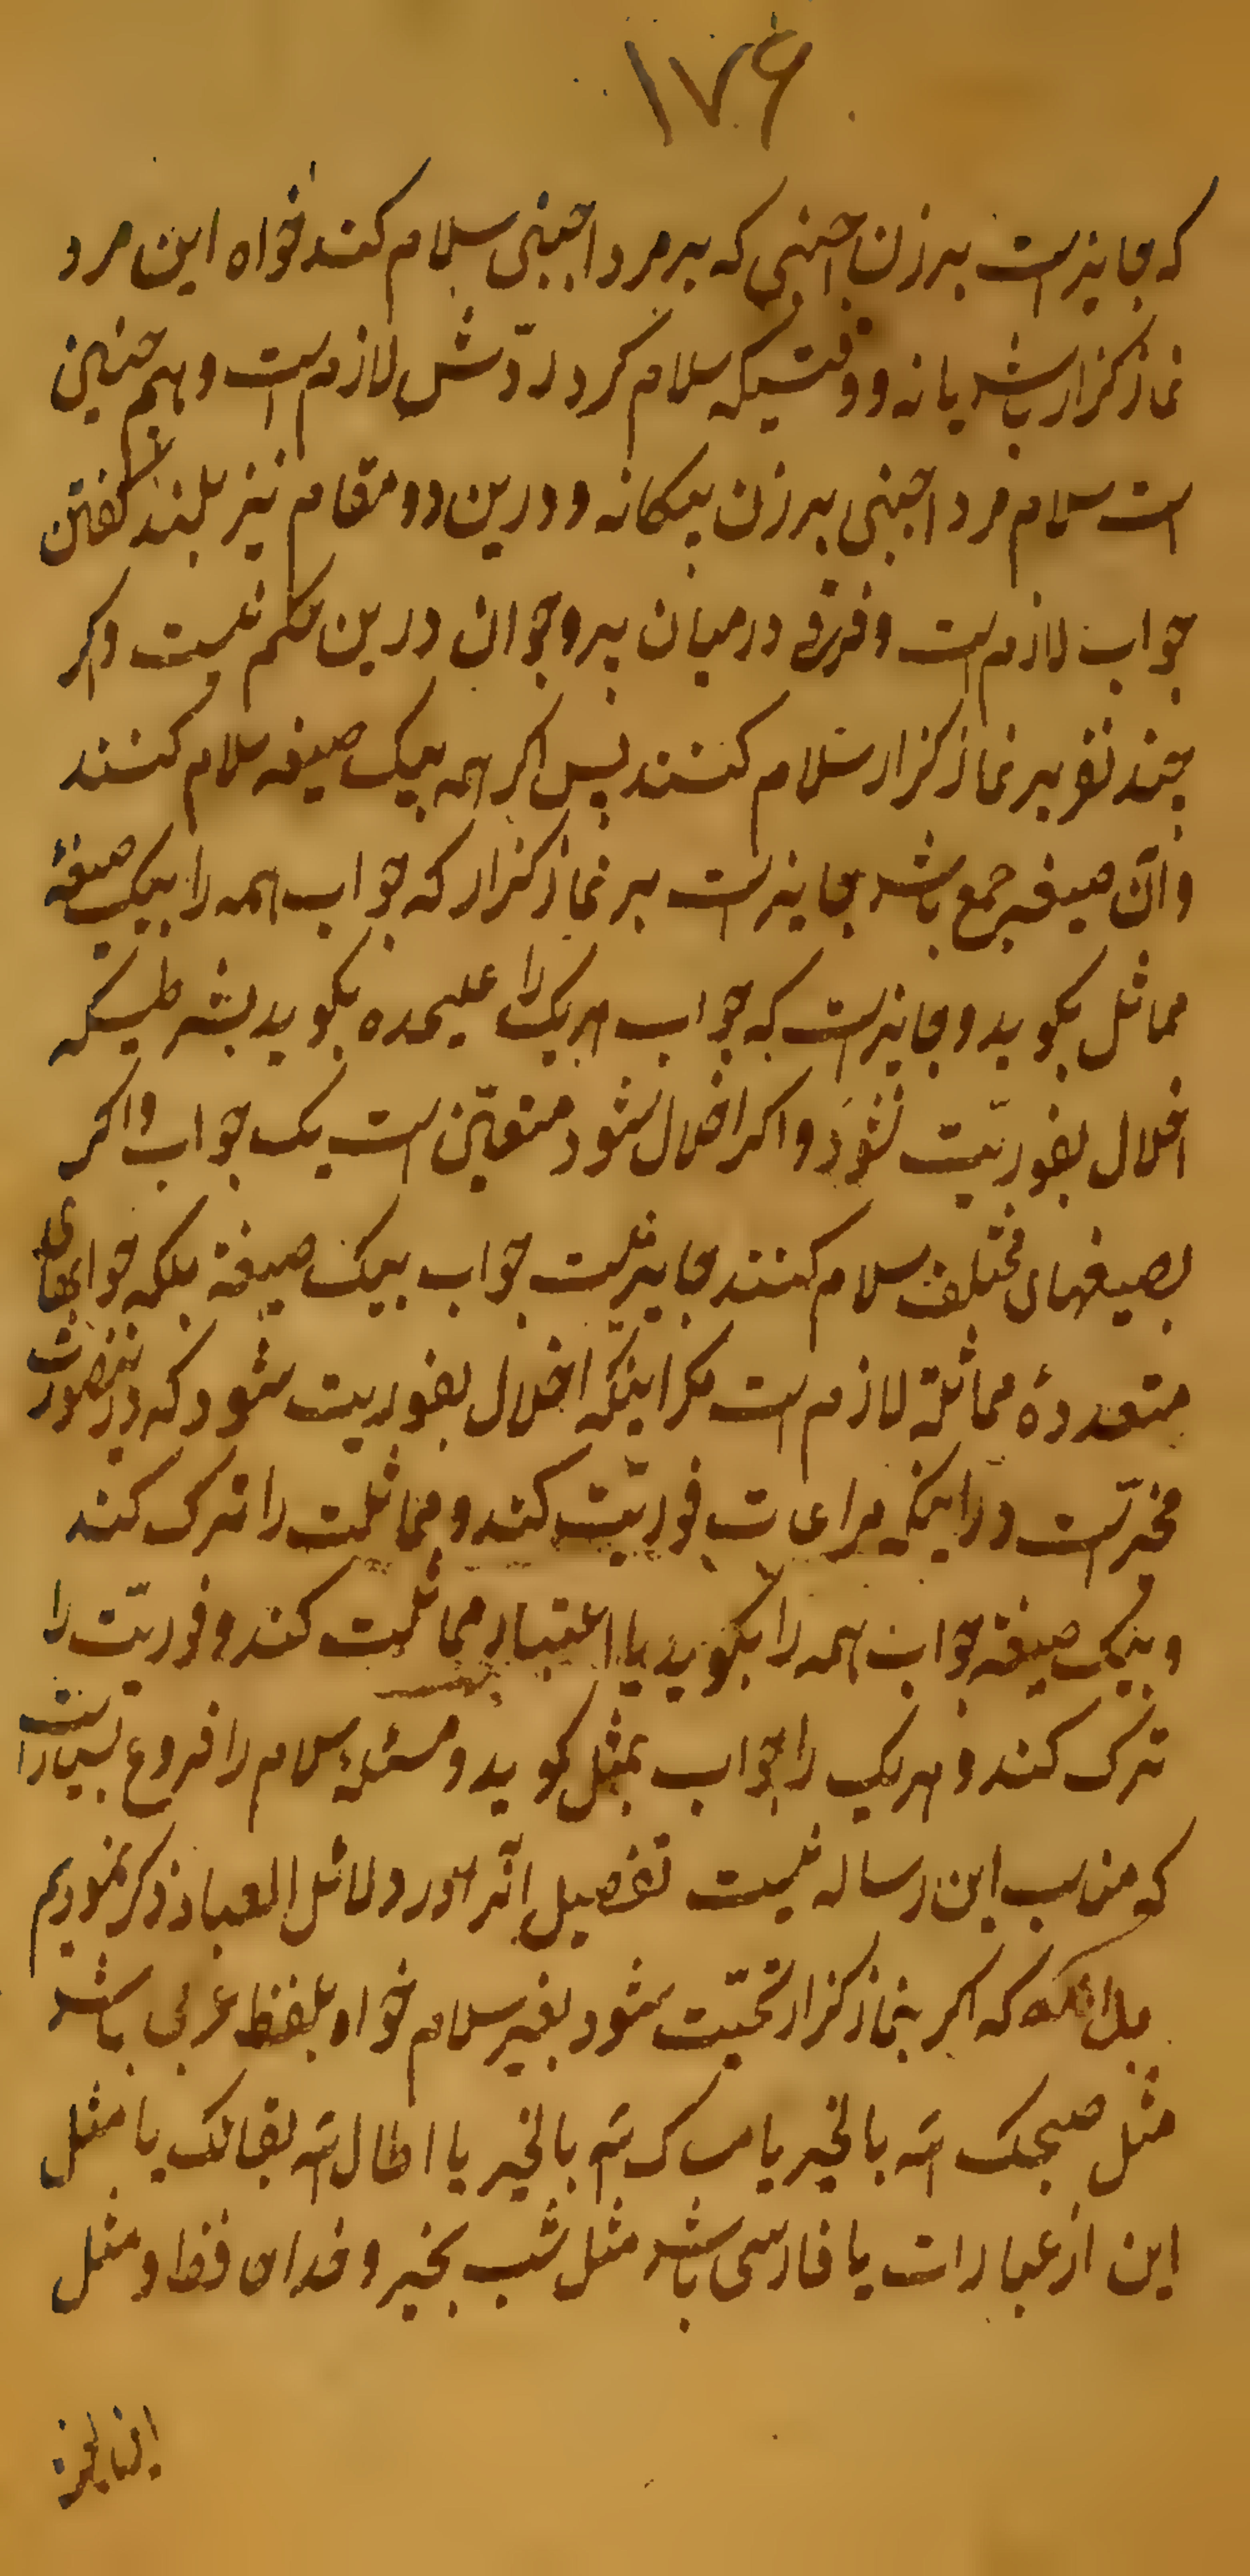 ۱۷۶
که جایزست برزن اجنبی که بر مرد اجنبی سلام کند خواه این مرد
نماز کزار باشد یا نه و وقتیکه سلام کرد ردّش لازم ست و هم چنین
است سلام مرد اجنبی برزن بیکانه و درین دو مقام نیز بلند کفتن
جواب لازم ست و فرقی درمیان پیر و جوان درین حکم نیست و اکر
چند نفر بر نماز کزار سلام کنند پس اکر همه بیک صیغه سلام کنند
و آن صیغه جمع باشد جایزست بر نماز کزار که جواب همه را بیک صیغهٔ
مماثل بکوید و جایزست که جواب هریک را علیحده بکوید بشرطیکه
اخلال بفوریّت نشود و اکر اخلال شود متعیّن است یک جواب و اکر
بصیغهای مختلف سلام کنند جایز نیست جواب بیک صیغة بلکه جوابهای
متعددهٔ مماثلة لازم ست مکر اینکه اخلال بفوریت شود که درینصورت
مخیّرست در اینکه مراعات فوریّت کند و مماثلت را ترک کند
و بیک صیغه جواب همه را بکوید یا اعتبار مماثلت کند و فوریّت را
ترک کند و هریک را جواب بمثل کوید و مسئلهٔ سلام را فروع بسیارست
که مناسب این رساله نیست تفصیل آنرا در دلائل العباد ذکر نمودیم
بدانکه که اکر بنماز کزار تحیّت شود بغیر سلام خواه بلفظ عربی باشد
مثل صبحک الله بالخیر یا مساک الله بالخیر یا اطال الله بقائک یا مثل
این از عبارات یا فارسی باشد مثل شب بخیر و خداحافظ و مثل
این نیز